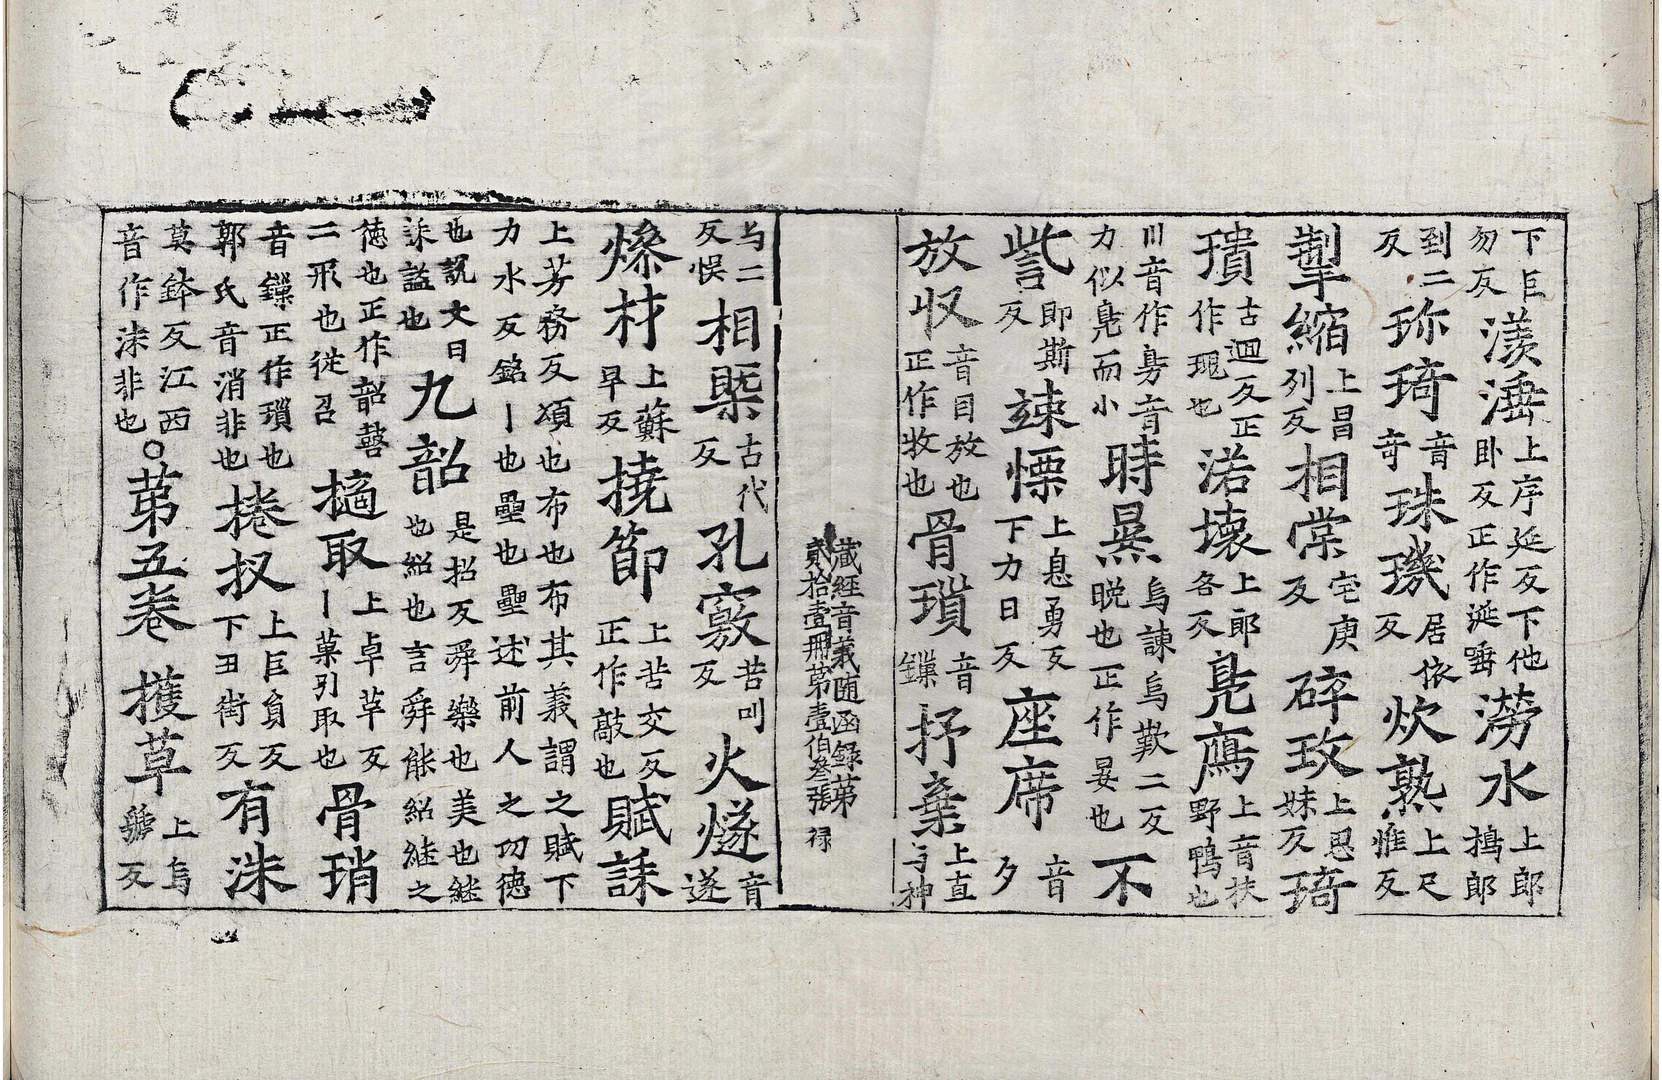 下巨勿反 湠涶 上序延反下他卧反正作涎唾 澇水 上郎
到二反 珎琦 音奇 珠璣 居依反 炊熟 上尺惟反
掣縮 上昌列反 相棠 宅庚反 碎玫 上恩妹反 琦
璝 古迴反正作瑰也 渃壊 上郎各反 鳬鴈 上音扶野鴨也
川音作㫄音力似鳬而小 時㬫 烏諫烏歎二反晩也正作晏也 不
訾 即斯反 竦慄 上息勇反下力日反 座席 音夕
放収 音目放也正作牧也 骨璅 音鏁 抒棄 上直与神
藏經音義随函録第
貳拾壹冊第壹伯叁張 禄
与二反悮 相槩 古代反 孔竅 苦叫反 火燧 音遂
㷮材 上蘇早反 撓節 上苦交反正作敲也 賦誄
上芳務反頌也布也布其義謂之賦下力水反銘丨也壘也壘述前人之功徳
也說文曰誄謚也 九韶 是招反舜樂也美也継也紹也言舜能紹継之
徳也正作韶磬二形也従召 擿取 上卓革反丨菓引取也 骨㻛
音鏁正作璅也郭氏音消非也 捲扠 上巨負反下丑街反 有洙
莫鉢反江西音作洙非也 〇第五卷 擭草 上烏虢反